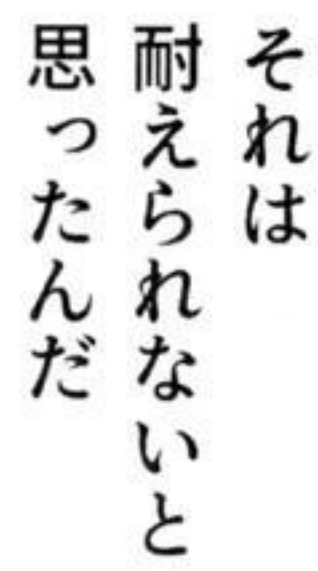 それは
耐えられないと
思ったんだ